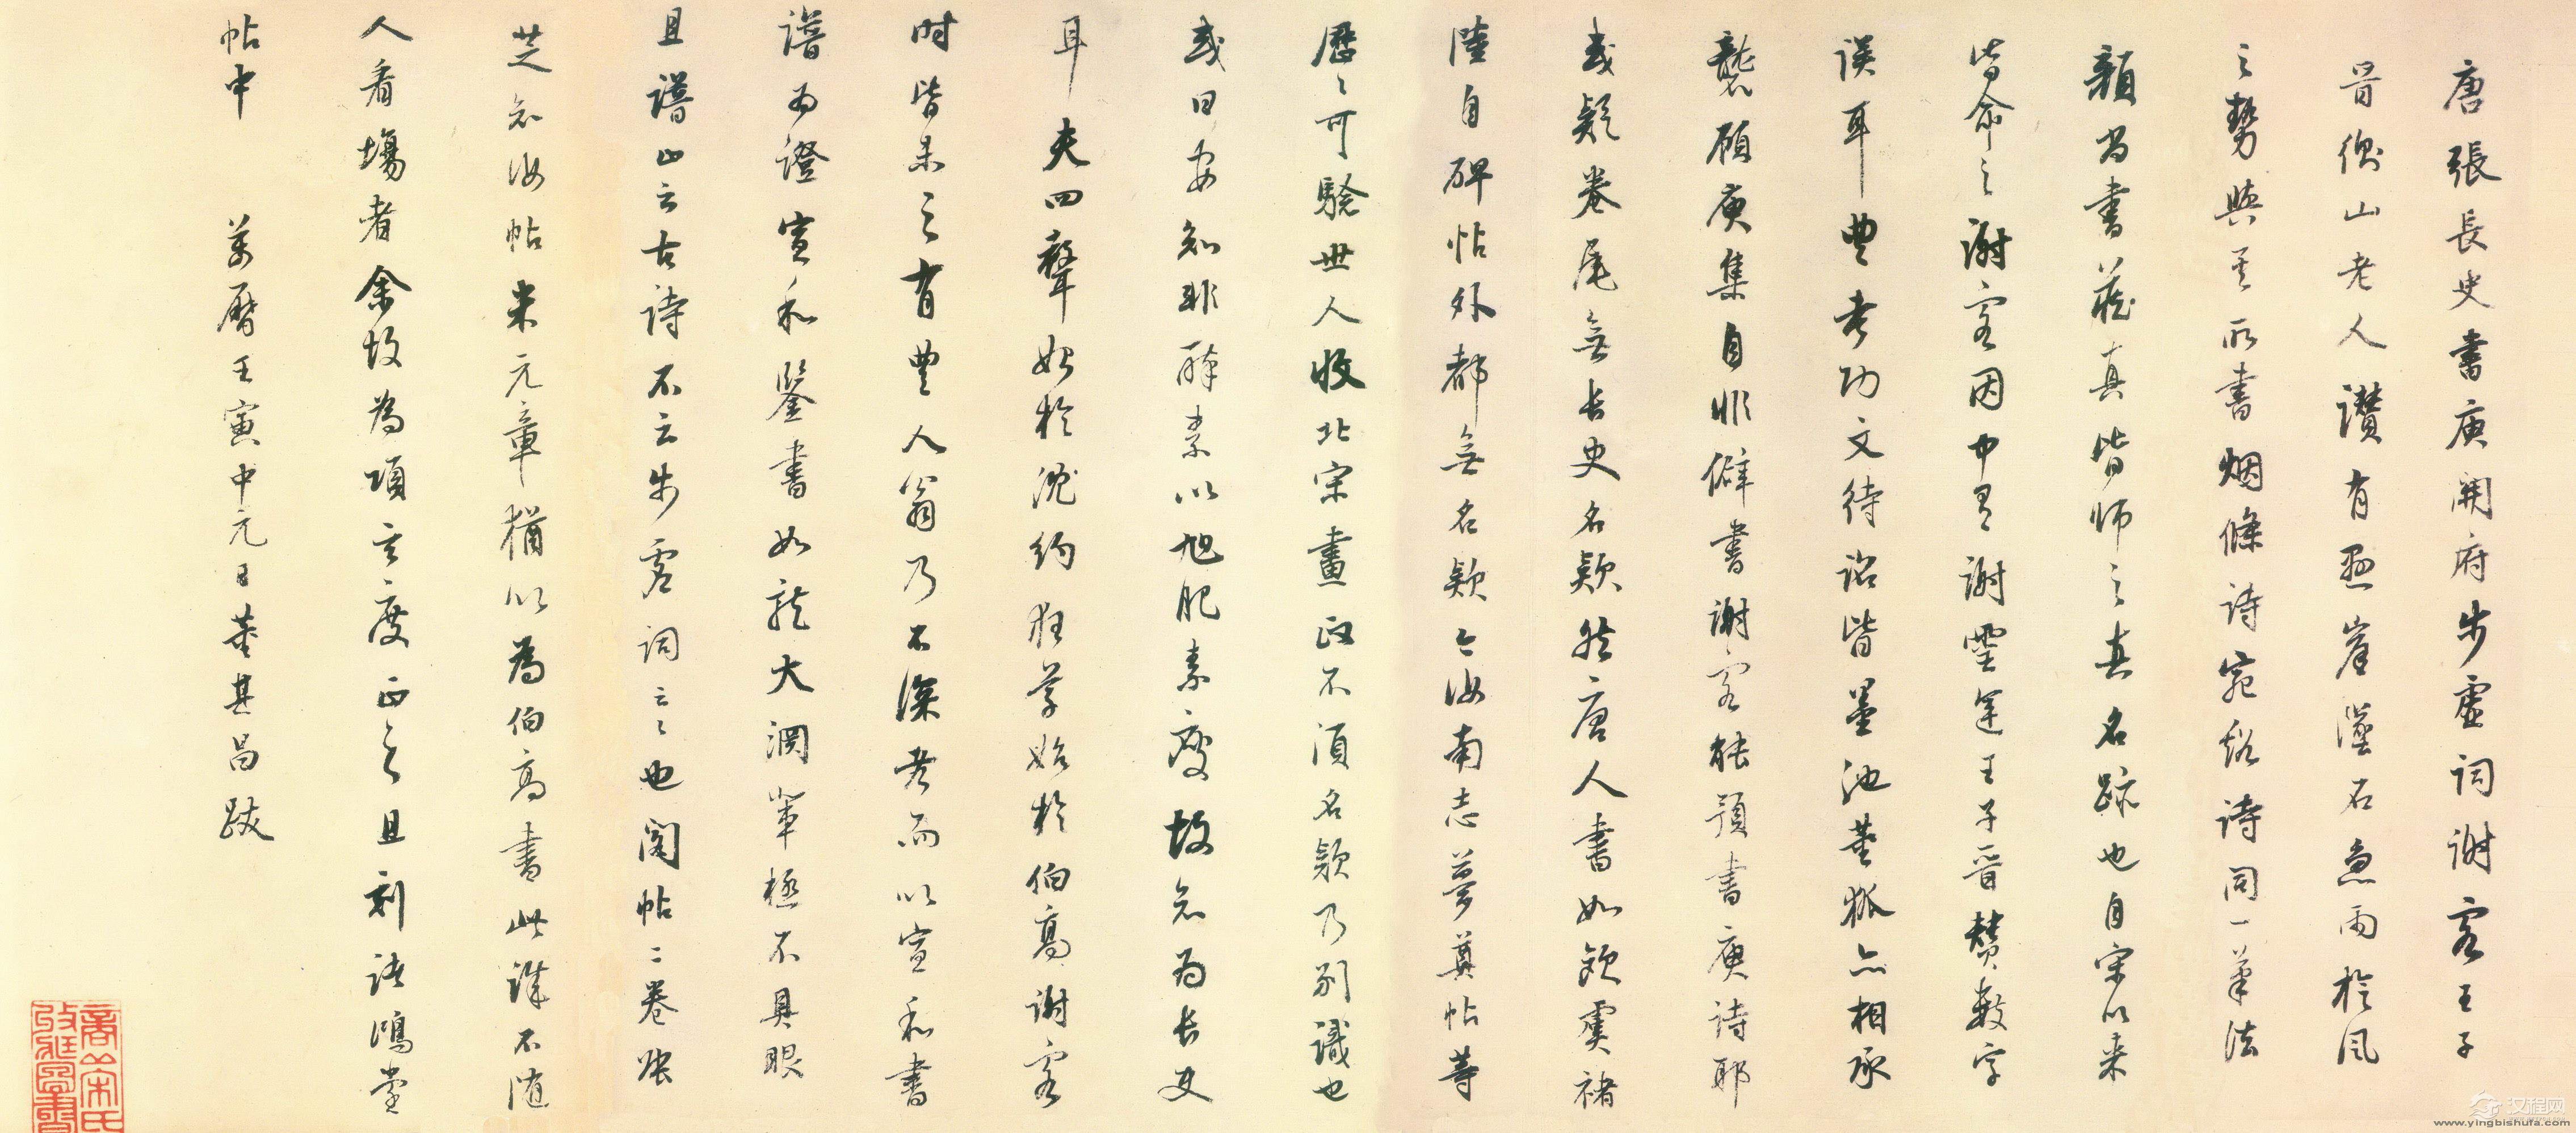 唐張長史書庾開府步虛詞謝客王子
晉衡山老人讚有懸崖墜石急雨旋風
之勢與其所書烟條詩宛谿詩同一筆法
顏尚書藏真皆師之真名跡也自宋以來
皆命之謝客因中有謝靈運王子晉贊數字
誤耳豐考功文待詔皆墨池董狐亦相承
襲顧庾集自非僻書謝客能預書庾詩耶
或疑卷尾無長史名款然唐人書如歐虞褚
陸自碑帖外都無名款今汝南志夢奠帖等
歷歷可驗世人收北宋畫政不須名款乃別識也
或曰安知非醉素以旭肥素瘦故知為長史
耳夫四聲始於沈約狂草始於伯高謝客
時皆未之有豐人翁乃不深考而以宣和書
譜為證宣和鑒書如龍大淵輩極不具眼
且譜止云古詩不云步虛詞云云也閣帖二卷張
芝知汝帖米元章猶以為伯高書此誤不隨
人看場者余故為項玄度正之且刻諸鴻堂
帖中　萬曆壬寅中元日董其昌跋
汉程网
www.yingbishufa.com